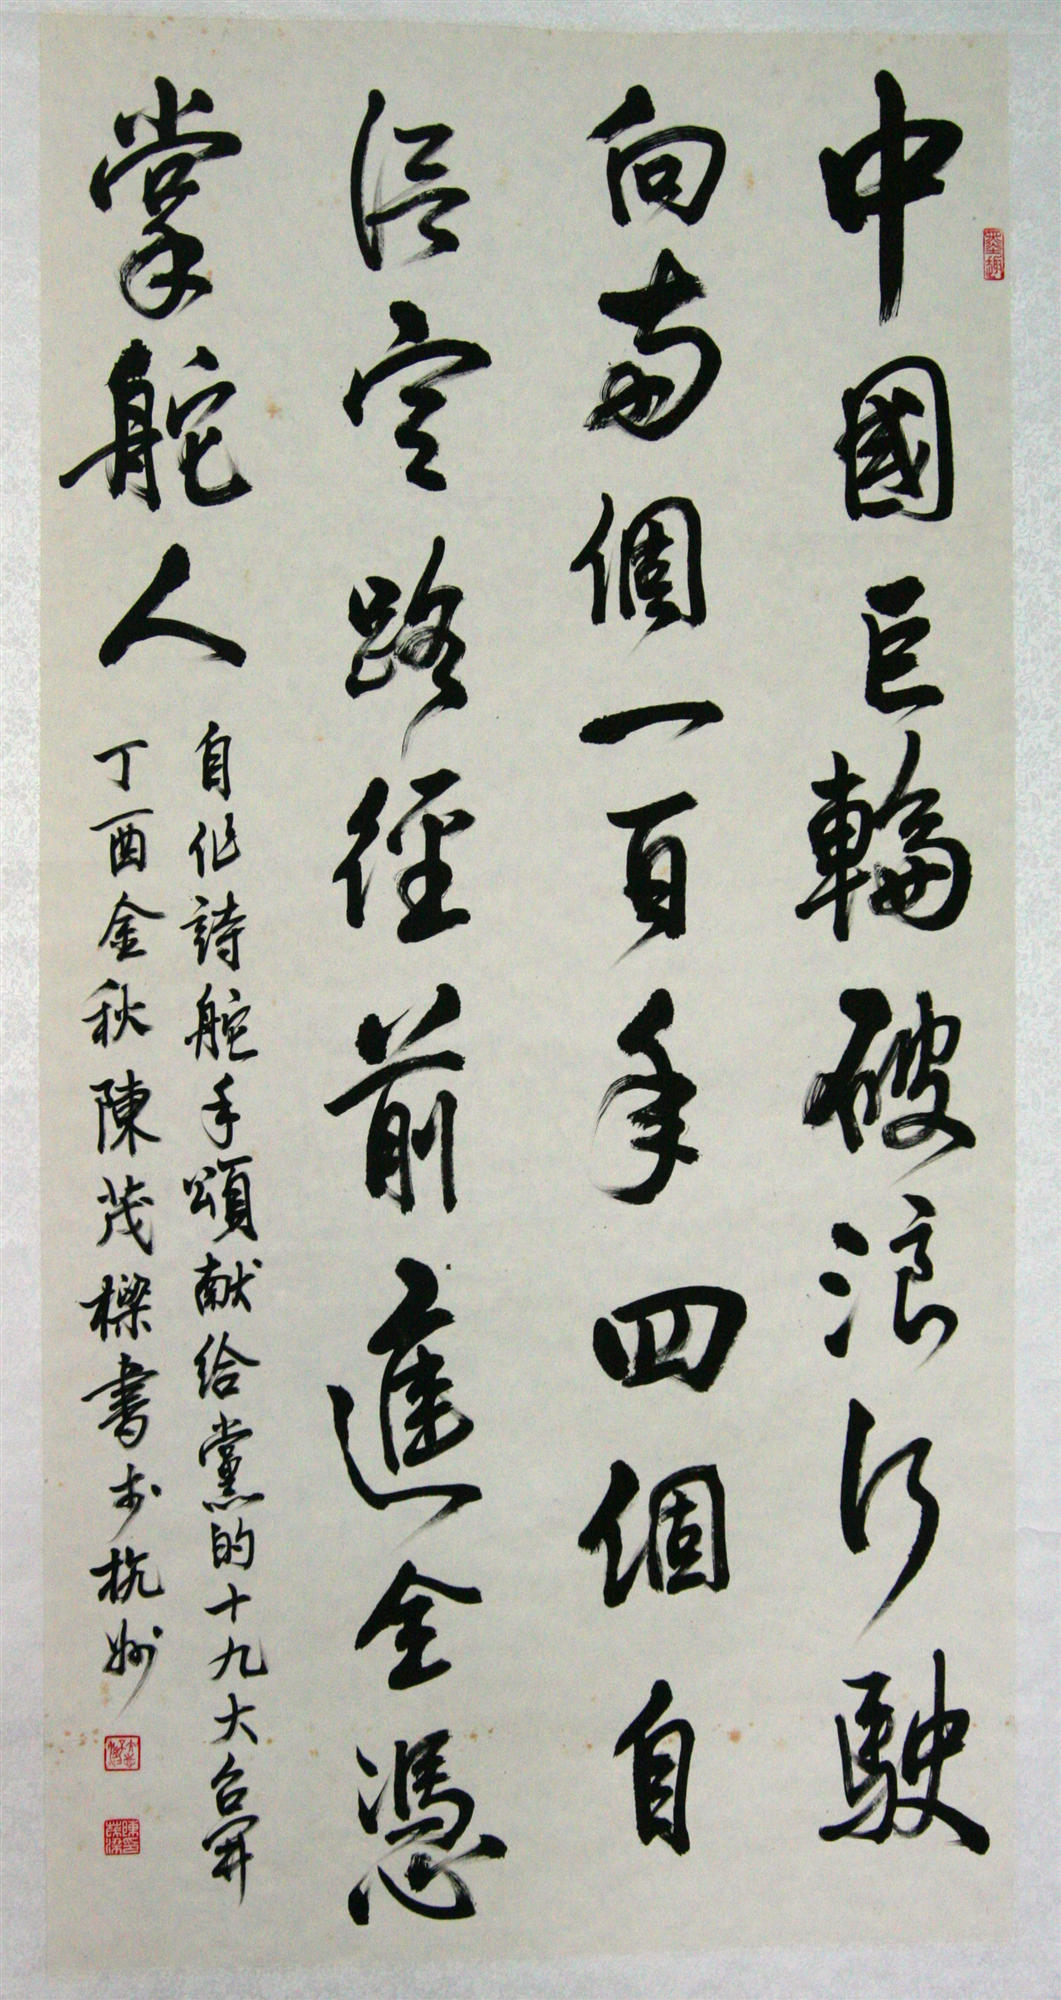 中國巨輪破浪行駛
向兩個一百年四個自
信定路徑前進全憑
掌舵人
自作詩舵手頌献給黨的十九大召開
丁酉金秋陳茂樑書於杭州
墨趣